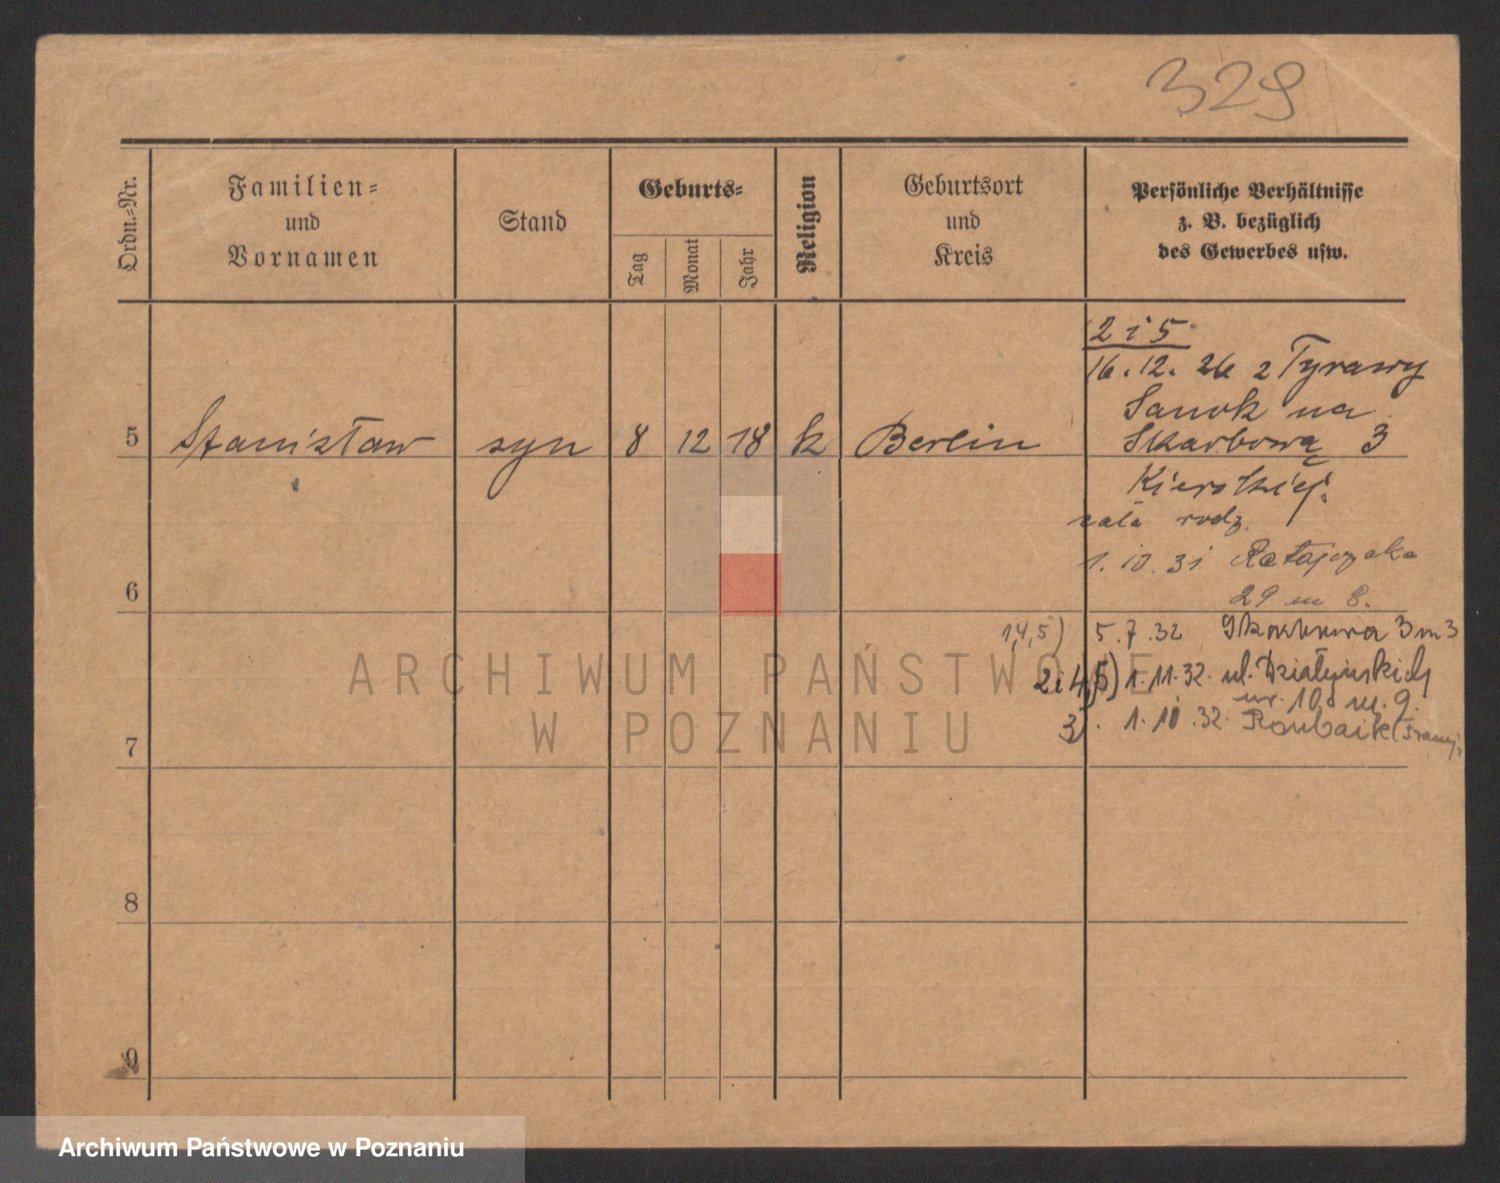 329
Ordn.-Nr.
Familien-
und
Vornamen
Stand
Geburts-
Tag
Monat
Jahr
Religion
Geburtsort
und
Kreis
Persönliche Verhältnisse
z. B. bezüglich
des Gewerbes usw.
2 i 5
16. 12. 26 z Tyrawy
Sanok na
5 Stanisław syn 8 12 18 k Berlin Skarbową 3
rodz.
1. 10. 31 Ratajczaka
6 29 m 8.
1,4,5) 5. 7. 32 Skarbowa 3 m 3
2 i 4,5) 1. 11. 32. ul. Działyńskich
nr. 10 m. 9.
7 3). 1. 10. 32 Roubaik
8
9
ARCHIWUM PAŃSTWOWE
W POZNANIU
Archiwum Państwowe w Poznaniu